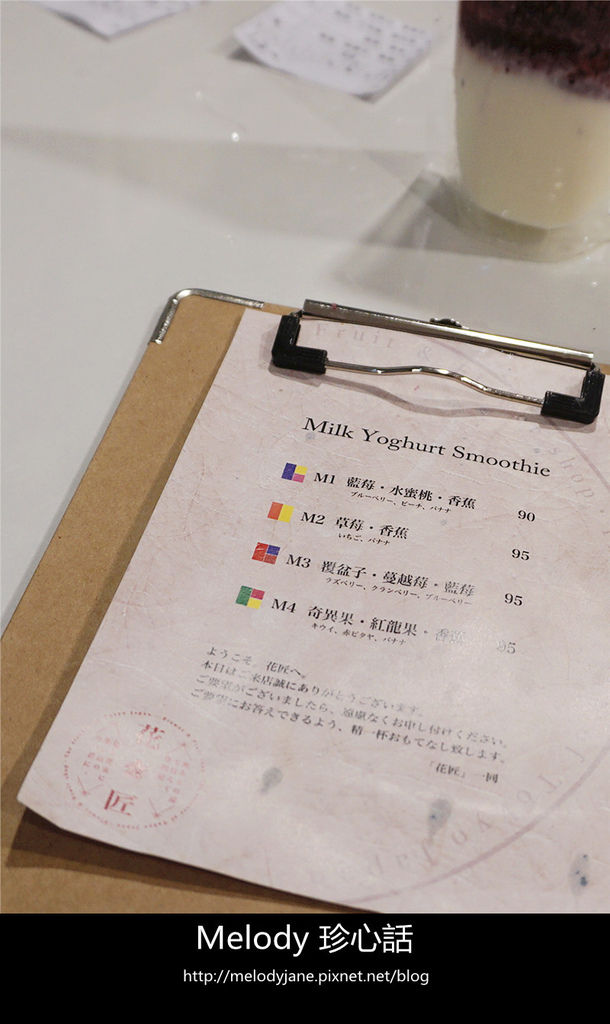 Fruit &
shop
Milk Yoghurt Smoothie
M1 藍莓・水蜜桃・香蕉 90
ブルーベリー、ピーチ、バナナ
M2 草莓・香蕉 95
いちご、バナナ
M3 覆盆子・蔓越莓・藍莓 95
ラズベリー、クランベリー、ブルーベリー
M4 奇異果・紅龍果・香蕉 95
キウイ、赤ピタヤ、バナナ
ようこそ、花匠へ。
本日はご来店誠にありがとうございます。
ご要望がございましたら、遠慮なくお申し付けください。
ご要望にお答えできるよう、精一杯おもてなし致します。
「花匠」一同
花
匠
Melody 珍心話
http://melodyjane.pixnet.net/blog